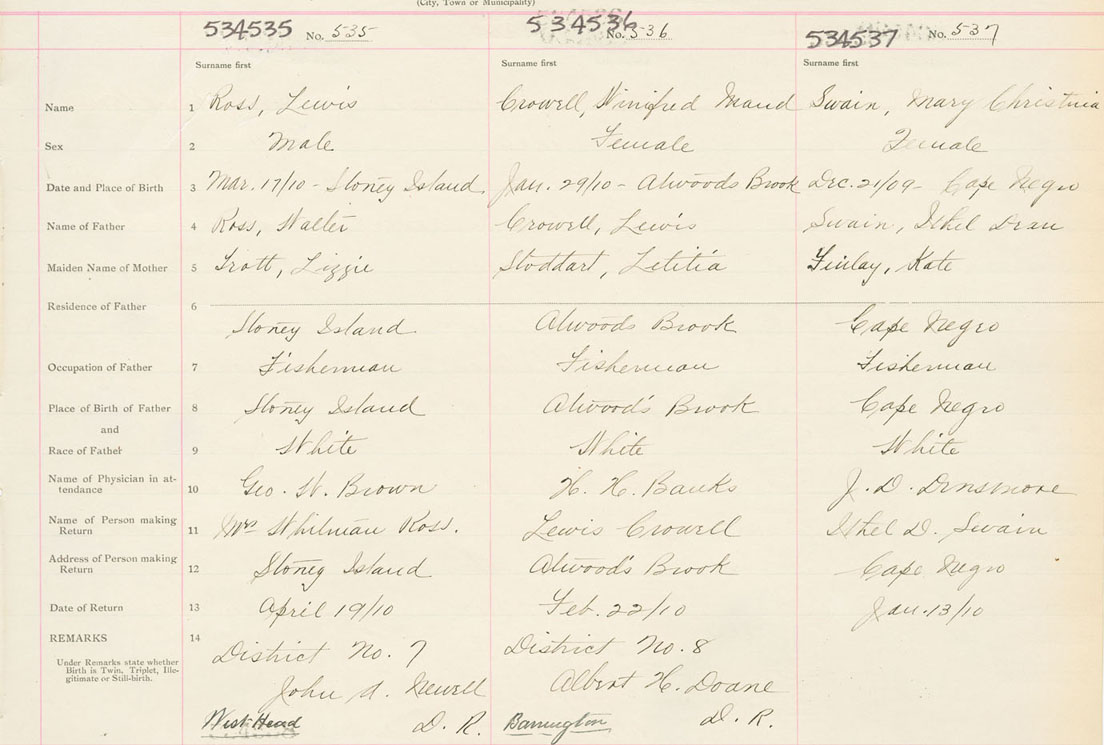 (City, Town or Municipality)
534535 No. 535 534536 No. 536 534537 No. 537
Surname first Surname first Surname first
Name 1 Ross, Lewis Crowell, Winifred Maud Swain, Mary Christina
Sex 2 Male Female Female
Date and Place of Birth 3 Mar. 17/10 - Stoney Island Jan. 29/10 - Atwoods Brook Dec. 21/09 - Cape Negro
Name of Father 4 Ross, Walter Crowell, Lewis Swain, Ethel Dean
Maiden Name of Mother 5 Trott, Lizzie Stoddart, Letitia Finlay, Kate
Residence of Father 6
Stoney Island Atwoods Brook Cape Negro
Occupation of Father 7 Fisherman Fisherman Fisherman
Place of Birth of Father 8 Stoney Island Atwood's Brook Cape Negro
and
Race of Father 9 White White White
Name of Physician in at-
tendance 10 Geo. W. Brown H. H. Banks J. D. Densmore
Name of Person making
Return 11 Mrs Whitman Ross. Lewis Crowell Ethel D. Swain
Address of Person making
Return 12 Stoney Island Atwoods Brook Cape Negro
Date of Return 13 April 19/10 Feb. 22/10 Jan. 13/10
REMARKS 14 District No. 7 District No. 8
Under Remarks state whether
Birth is Twin, Triplet, Ille-
gitimate or Still-birth.
John A. Newell Albert H. Doane
West Head D. R. Barrington D. R.